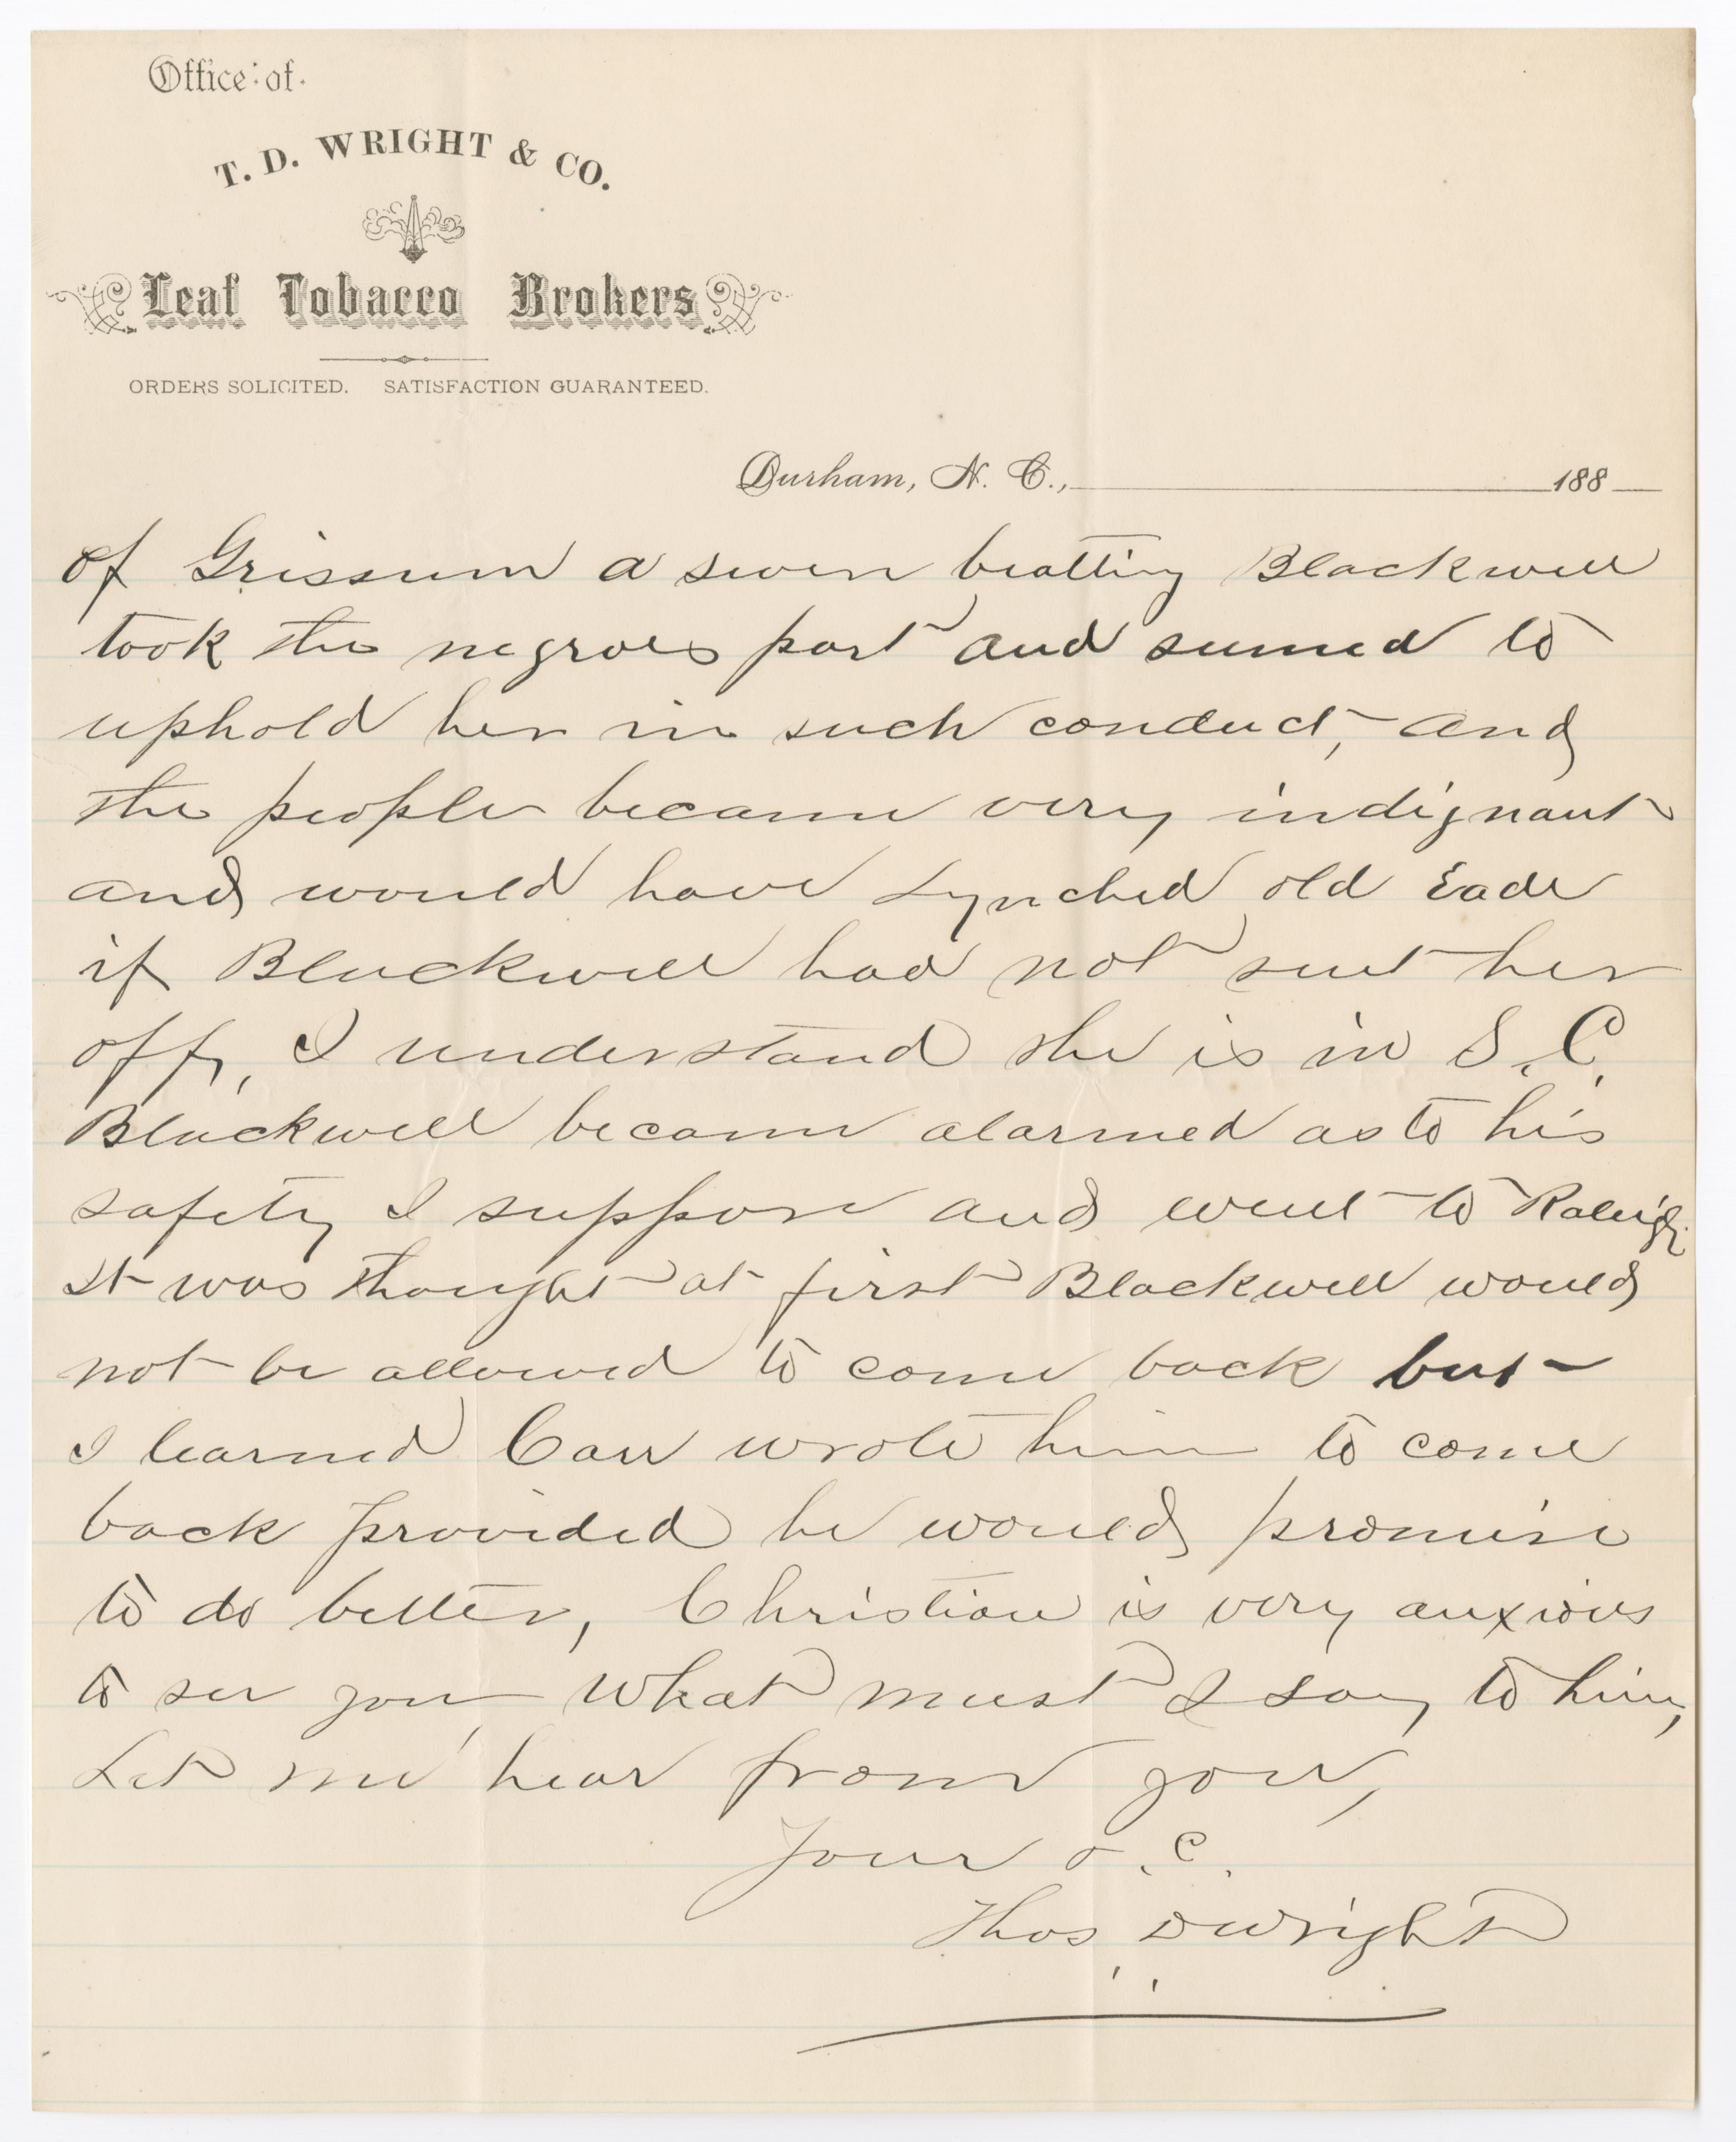 Office of
T. D. WRIGHT & CO.
Leaf Tobacco Brokers
ORDERS SOLICITED. SATISFACTION GUARANTEED.
Durham, N. C., 188
of Grissum a seven beatting Blackwell
took the negroes part and seemed to
uphold her in such conduct, and
the people became very indignant
and would have Lynched old Eade
if Blackwell had not sent her
off, I understand she is in S. C.
Blackwell became alarmed as to his
safety I suppose and went to Raleigh
It was thought at first Blackwell would
not be allowed to come back but
I learned Carr wrote him to come
back provided he would promise
to do better, Christian is very anxious
to see you, What must I say to him,
Let me hear from you,
Your o. c.
Thos D Wright